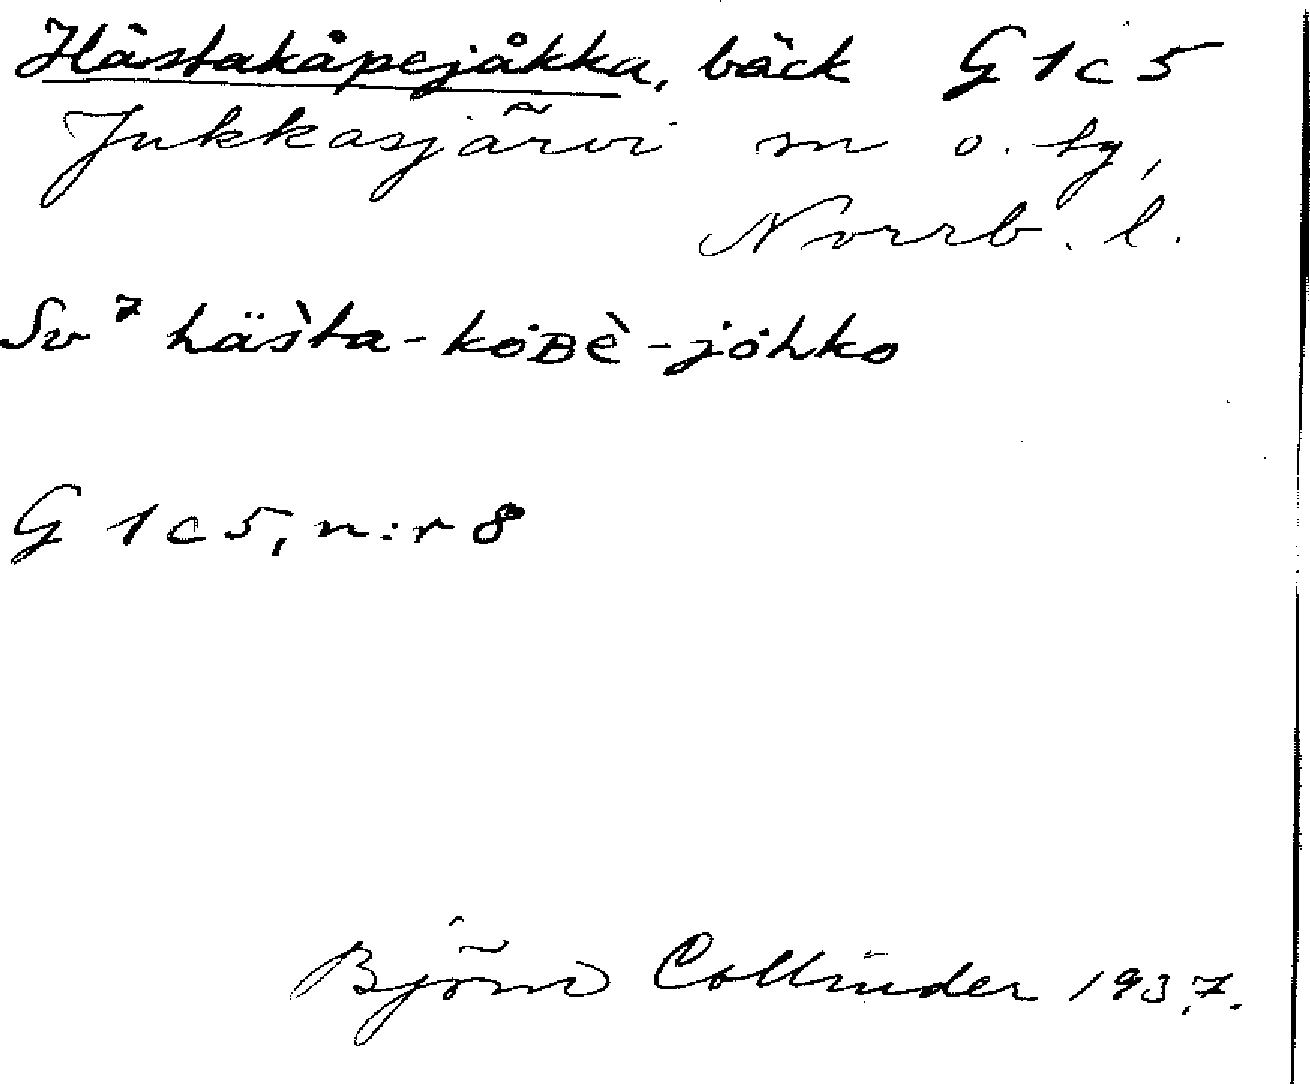 Hästakåpejåkka, bäck G 1 c 5
Jukkasjärvi sn o. tg,
Norrb. l.
Sv⁷ häs̀ta-kȯʙè-jȯhko
G 1 c 5, n:r 8
Björn Collinder 1937.